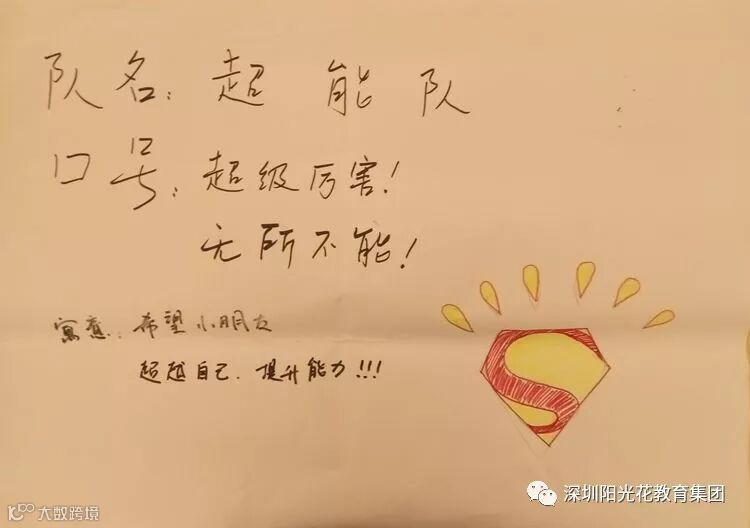 队名：超能队
口号：超级厉害！
无所不能！
寓意：希望小朋友
超越自己．提升能力！！！
S
深圳阳光花教育集团
大数跨境